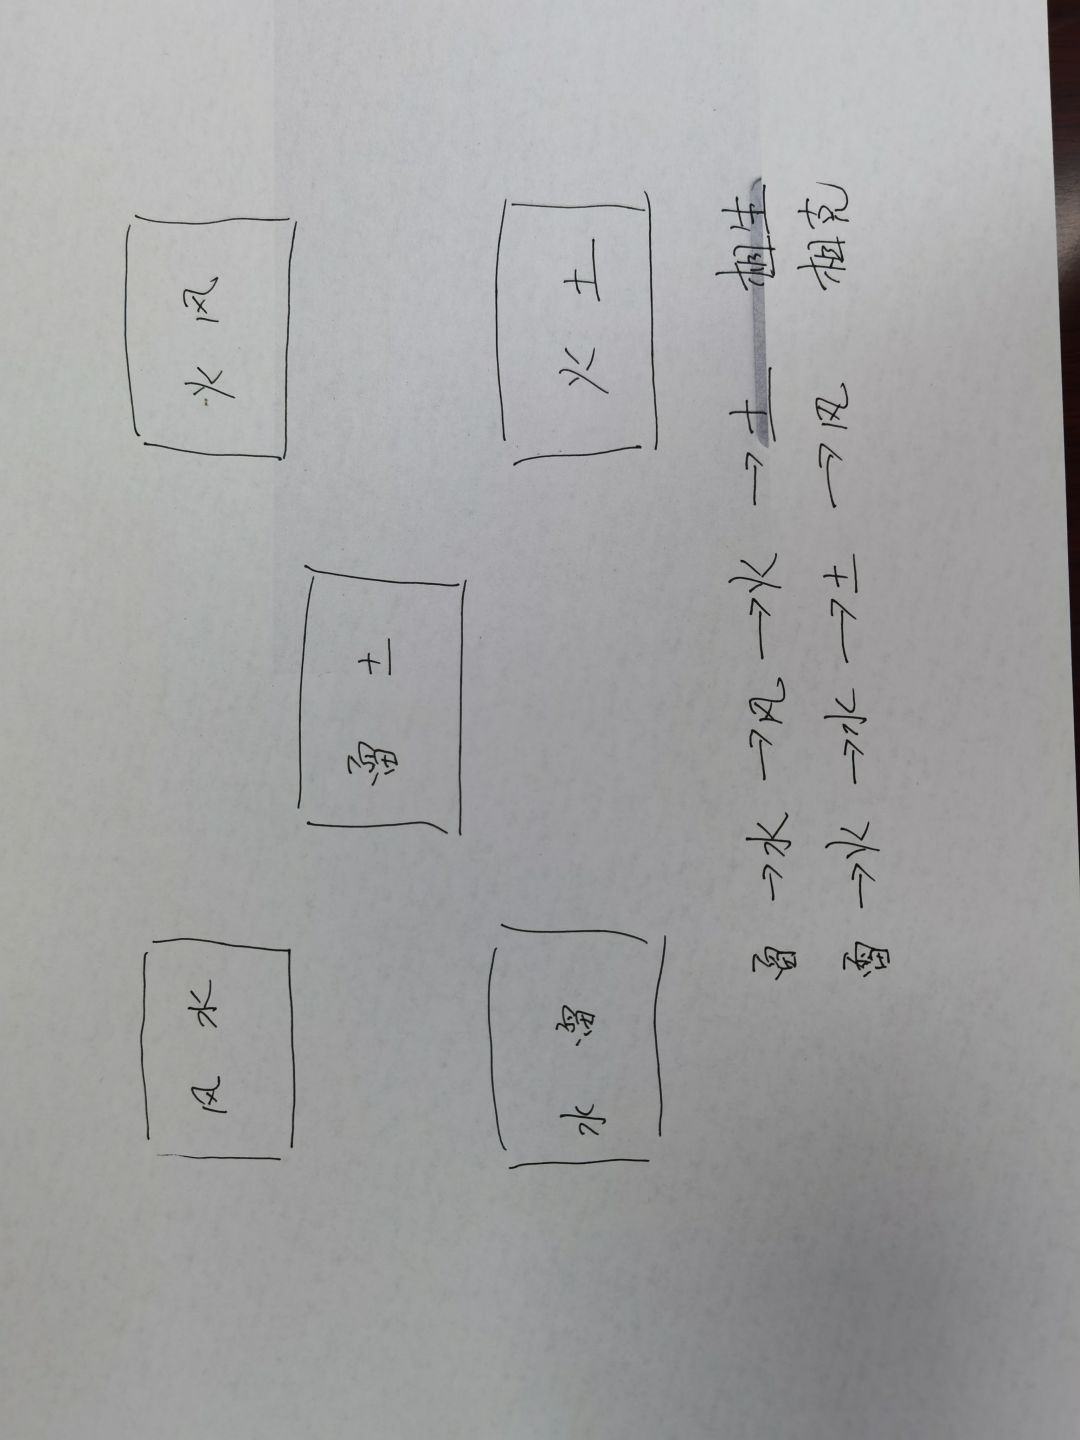 风 水
火 风
雷 土
水 雷
火 土
雷 →水 →风 →火 →土 相生
雷 →火 →水 →土 →风 相克